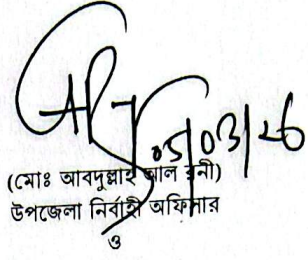 05/03/26
(মোঃ আবদুল্লাহ আল রনী)
উপজেলা নির্বাহী অফিসার
ও